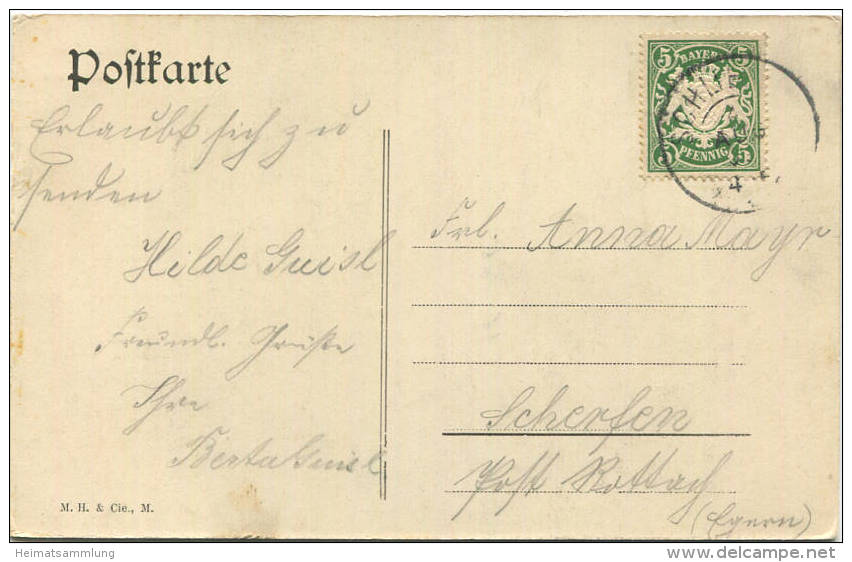 Postkarte
Erlaubt sich zu
senden
Hilde Geisl
Freundl. Grüße
Ihre
Berta Geisl
M. H. & Cie., M.
BAYERN
5 5
PFENNIG
5 5
Frl. Anna Mayr
Scherfen
Post Rottach
(Egern)
Heimatsammlung
www.delcampe.net